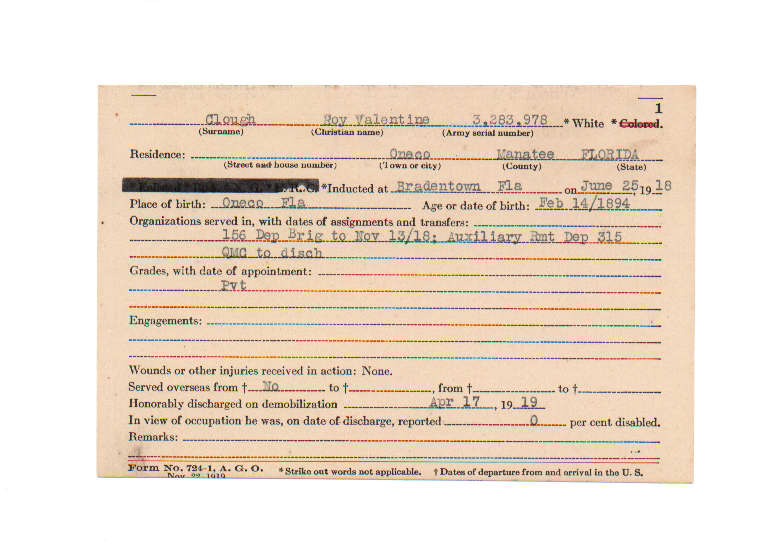 1
Clough Roy Valentine 3,283,978 * White * Colored.
(Surname) (Christian name) (Army serial number)
Residence: Oneco Manatee FLORIDA
(Street and house number) (Town or city) (County) (State)
R. C. *Inducted at Bradentown Fla on June 25, 19 18
Place of birth: Oneco Fla Age or date of birth: Feb 14/1894
Organizations served in, with dates of assignments and transfers:
156 Dep Brig to Nov 13/18; Auxiliary Rmt Dep 315
QMC to disch
Grades, with date of appointment:
Pvt
Engagements:
Wounds or other injuries received in action: None.
Served overseas from † No to †, from † to †
Honorably discharged on demobilization Apr 17, 19 19
In view of occupation he was, on date of discharge, reported 0 per cent disabled.
Remarks:
Form No. 724-1, A. G. O. * Strike out words not applicable. † Dates of departure from and arrival in the U. S.
Nov. 22, 1919